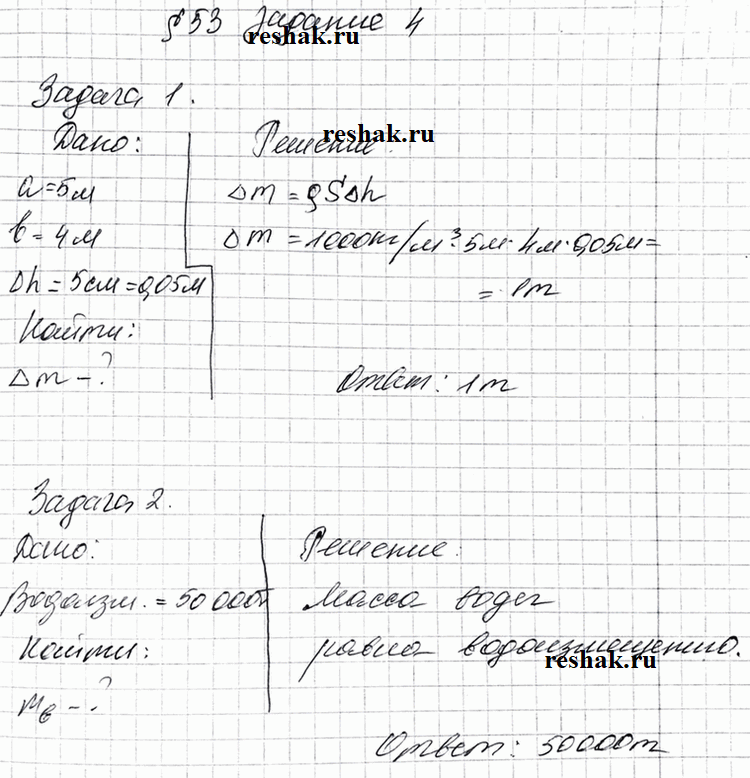 §53 Задание 4
reshak.ru
Задача 1.
Дано:
a=5м
b=4м
Δh=5см=0,05м
Найти:
Δm-?
reshak.ru
Решение:
Δm=ρSΔh
Δm=1000кг/м³·5м·4м·0,05м=
=1т
Ответ: 1т
Задача 2.
Дано:
Водоизм.=50000т
Найти:
mв-?
Решение:
Масса воды
равна водоизмещению.
reshak.ru
Ответ: 50000т